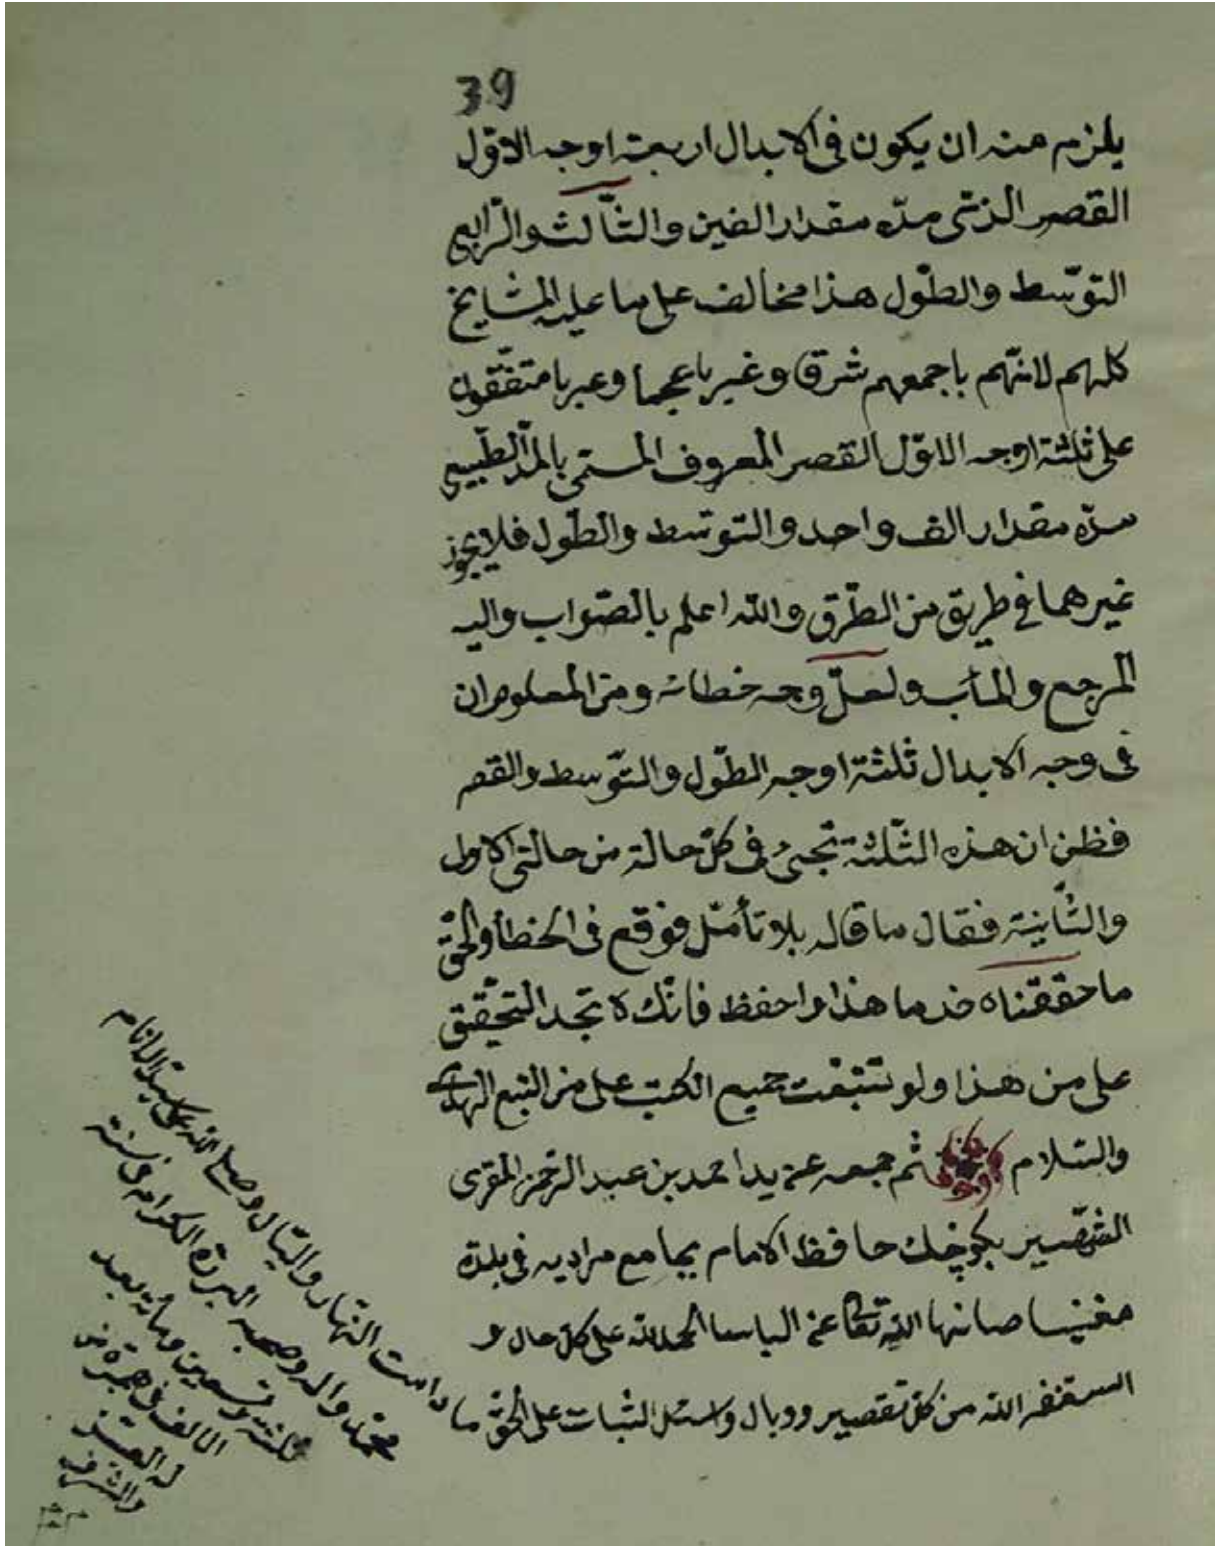 39
يلزم منه ان يكون فى الابدال اربعة اوجه الاوّل
القصر الذى مدّه مقدار الفين والثّالث والرّابع
التوسّط والطّول هذا مخالف على ما عليه المشايخ
كلهم لانّهم باجمعهم شرقا وغربا عجما وعربا متفّقون
على ثلثة اوجه الاوّل القصر المعروف المسمّى بالمدّ الطّبيعى
مدّه مقدار الف واحد والتوسّط والطّول فلا يجوز
غيرهما فى طريق من الطّرق والله اعلم بالصّواب واليه
المرجع والمآب ولعلّ وجه خطائه ومن المعلوم ان
فى وجه الابدال ثلثة اوجه الطّول والتّوسط والقصر
فظن ان هذه الثّلثة تجئ فى كلّ حالة من حالتى الاولى
والثّانية فقال ما قاله بلا تأمّل فوقع فى الخطأ والحقّ
ما حققناه خذ ما هذا واحفظ فانّك لا تجد التحقيق
على من هذا ولو تتبّعت جميع الكتب على من اتبع الهدى
والسّلام تم جمعه عن يد احمد بن عبد الرّحمن المقرى
الشهير بكوچك حافظ الامام بجامع مراديه فى بلدة
مغنيسا صانها الله تعالى عن الباسا الحمد لله على كل حال و
استغفر الله من كل تقصير ووبال واسئل الثبات على الحق ما
دامت النهار والليال وصلى الله على سيد الانام
محمّد واله وصحبه البررة الكرام فى سنة
ثلثة وتسعين ومأة بعد
الالف من هجرة من
له العز
والشرف